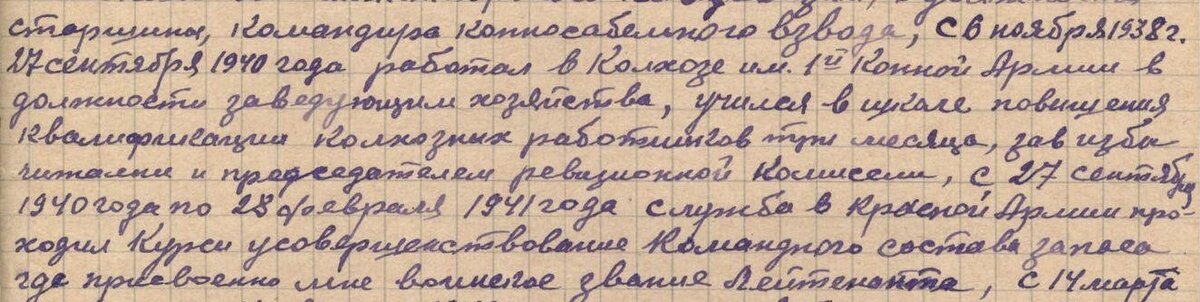 старшины, командира конносабельного взвода, с 6 ноября 1938 г.
27 сентября 1940 года работал в колхозе им. 1й Конной Армии в
должности заведующим хозяйства, учился в школе повышения
квалификации колхозных работников три месяца, зав избы
читални и председателем ревизионной комисеи, с 27 сентября
1940 года по 28 февраля 1941 года служба в красной Армии про-
ходил курси усовершенствование командного состава запаса
где присвоенно мне воинское звание Лейтенанта, с 14 марта